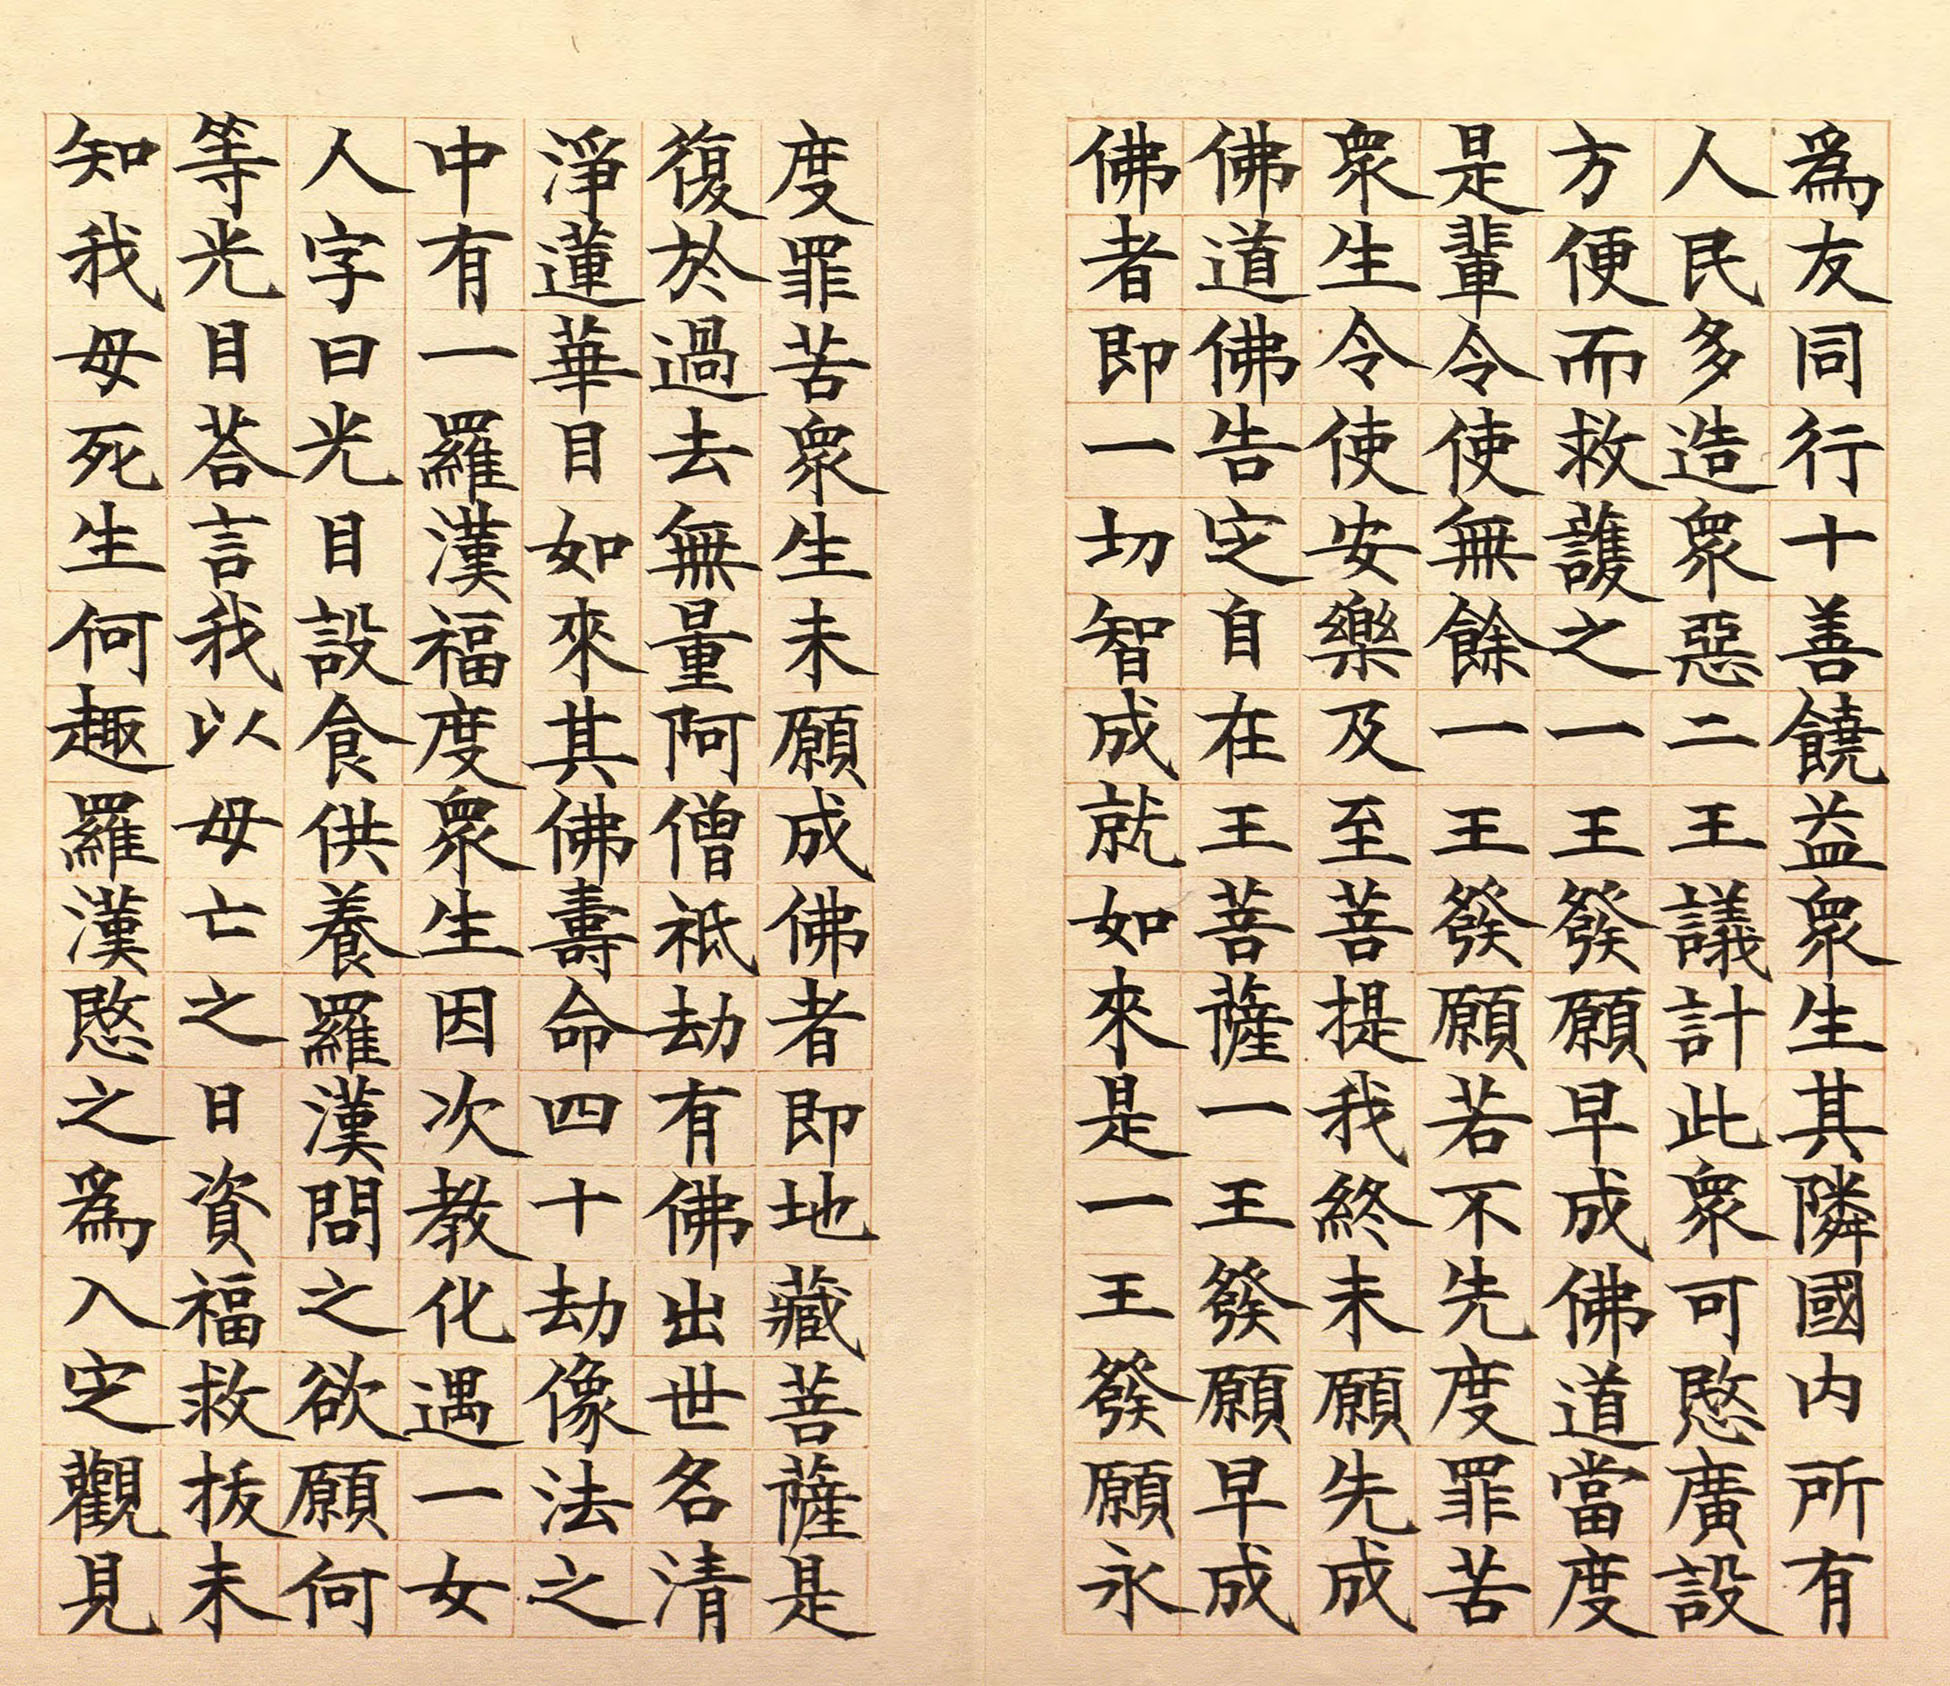 為友同行十善饒益眾生其隣國內所有
人民多造眾惡二王議計此眾可愍廣設
方便而救護之一王發願早成佛道當度
是輩令使無餘一王發願若不先度罪苦
眾生令使安樂及至菩提我終未願先成
佛道佛告定自在王菩薩一王發願早成
佛者即一切智成就如來是一王發願永
度罪苦眾生未願成佛者即地藏菩薩是
復於過去無量阿僧祇劫有佛出世名清
淨蓮華目如來其佛壽命四十劫像法之
中有一羅漢福度眾生因次教化遇一女
人字曰光目設食供養羅漢問之欲願何
等光目荅言我以母亡之日資福救拔未
知我母死生何趣羅漢愍之為入定觀見